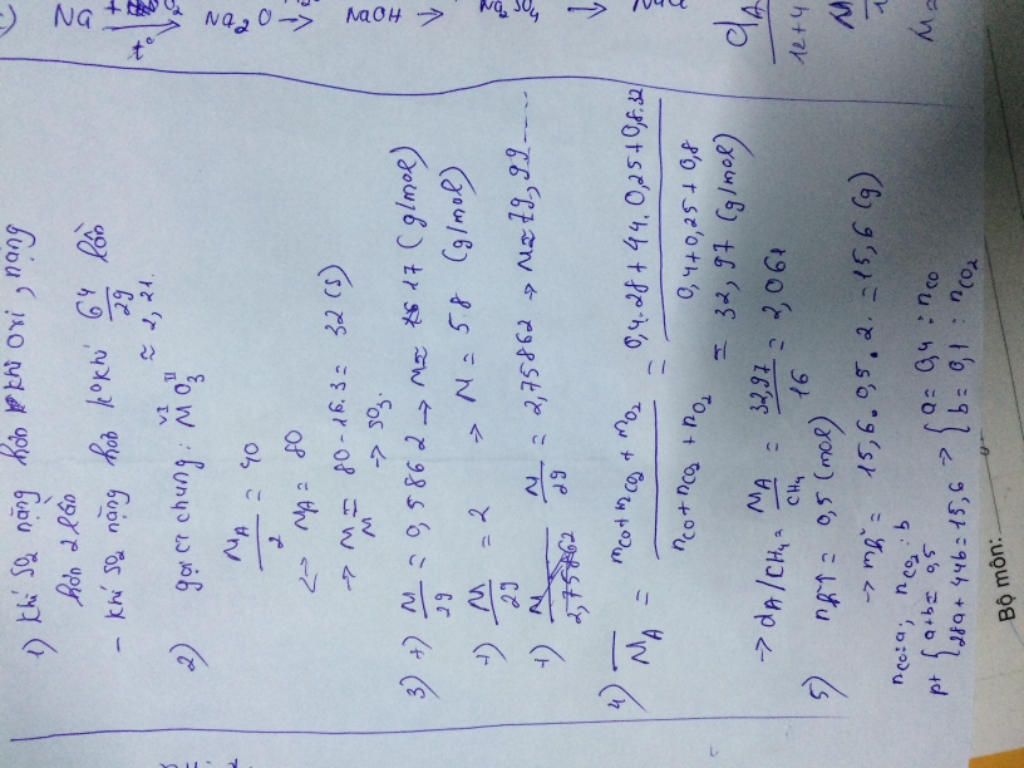 1) khí SO2 nặng hơn khí oxi, nặng
hơn 2 lần
- khí SO2 nặng hơn kokhí 64/29 lần
≈ 2,21.
2) gọi ct chung: M^VI O3^II
MA/2 = 40
<-> MA = 80
-> M = 80 - 16.3 = 32 (S)
M -> SO3.
3) +) M/29 = 0,5862 -> M = 17 (g/mol)
+) M/29 = 2 => M = 58 (g/mol)
+) M/29 = 2,75862 -> M = 79,99....
4) MA = (mCO + mCO2 + mO2)/(nCO + nCO2 + nO2) = (0,4.28 + 44.0,25 + 0,8.32)/(0,4 + 0,25 + 0,8)
= 32,97 (g/mol)
-> dA/CH4 = MA/CH4 = 32,97/16 = 2,061
5) nA↑ = 0,5 (mol)
-> mA = 15,6.0,5.2 = 15,6 (g)
nCO: a; nCO2: b
pt { a+b = 0,5
28a + 44b = 15,6 -> { a = 0,4 : nCO
b = 0,1 : nCO2
Na
t°
Na2O -> NaOH -> Na2SO4 ->
dA
12+4
M
Bộ môn: